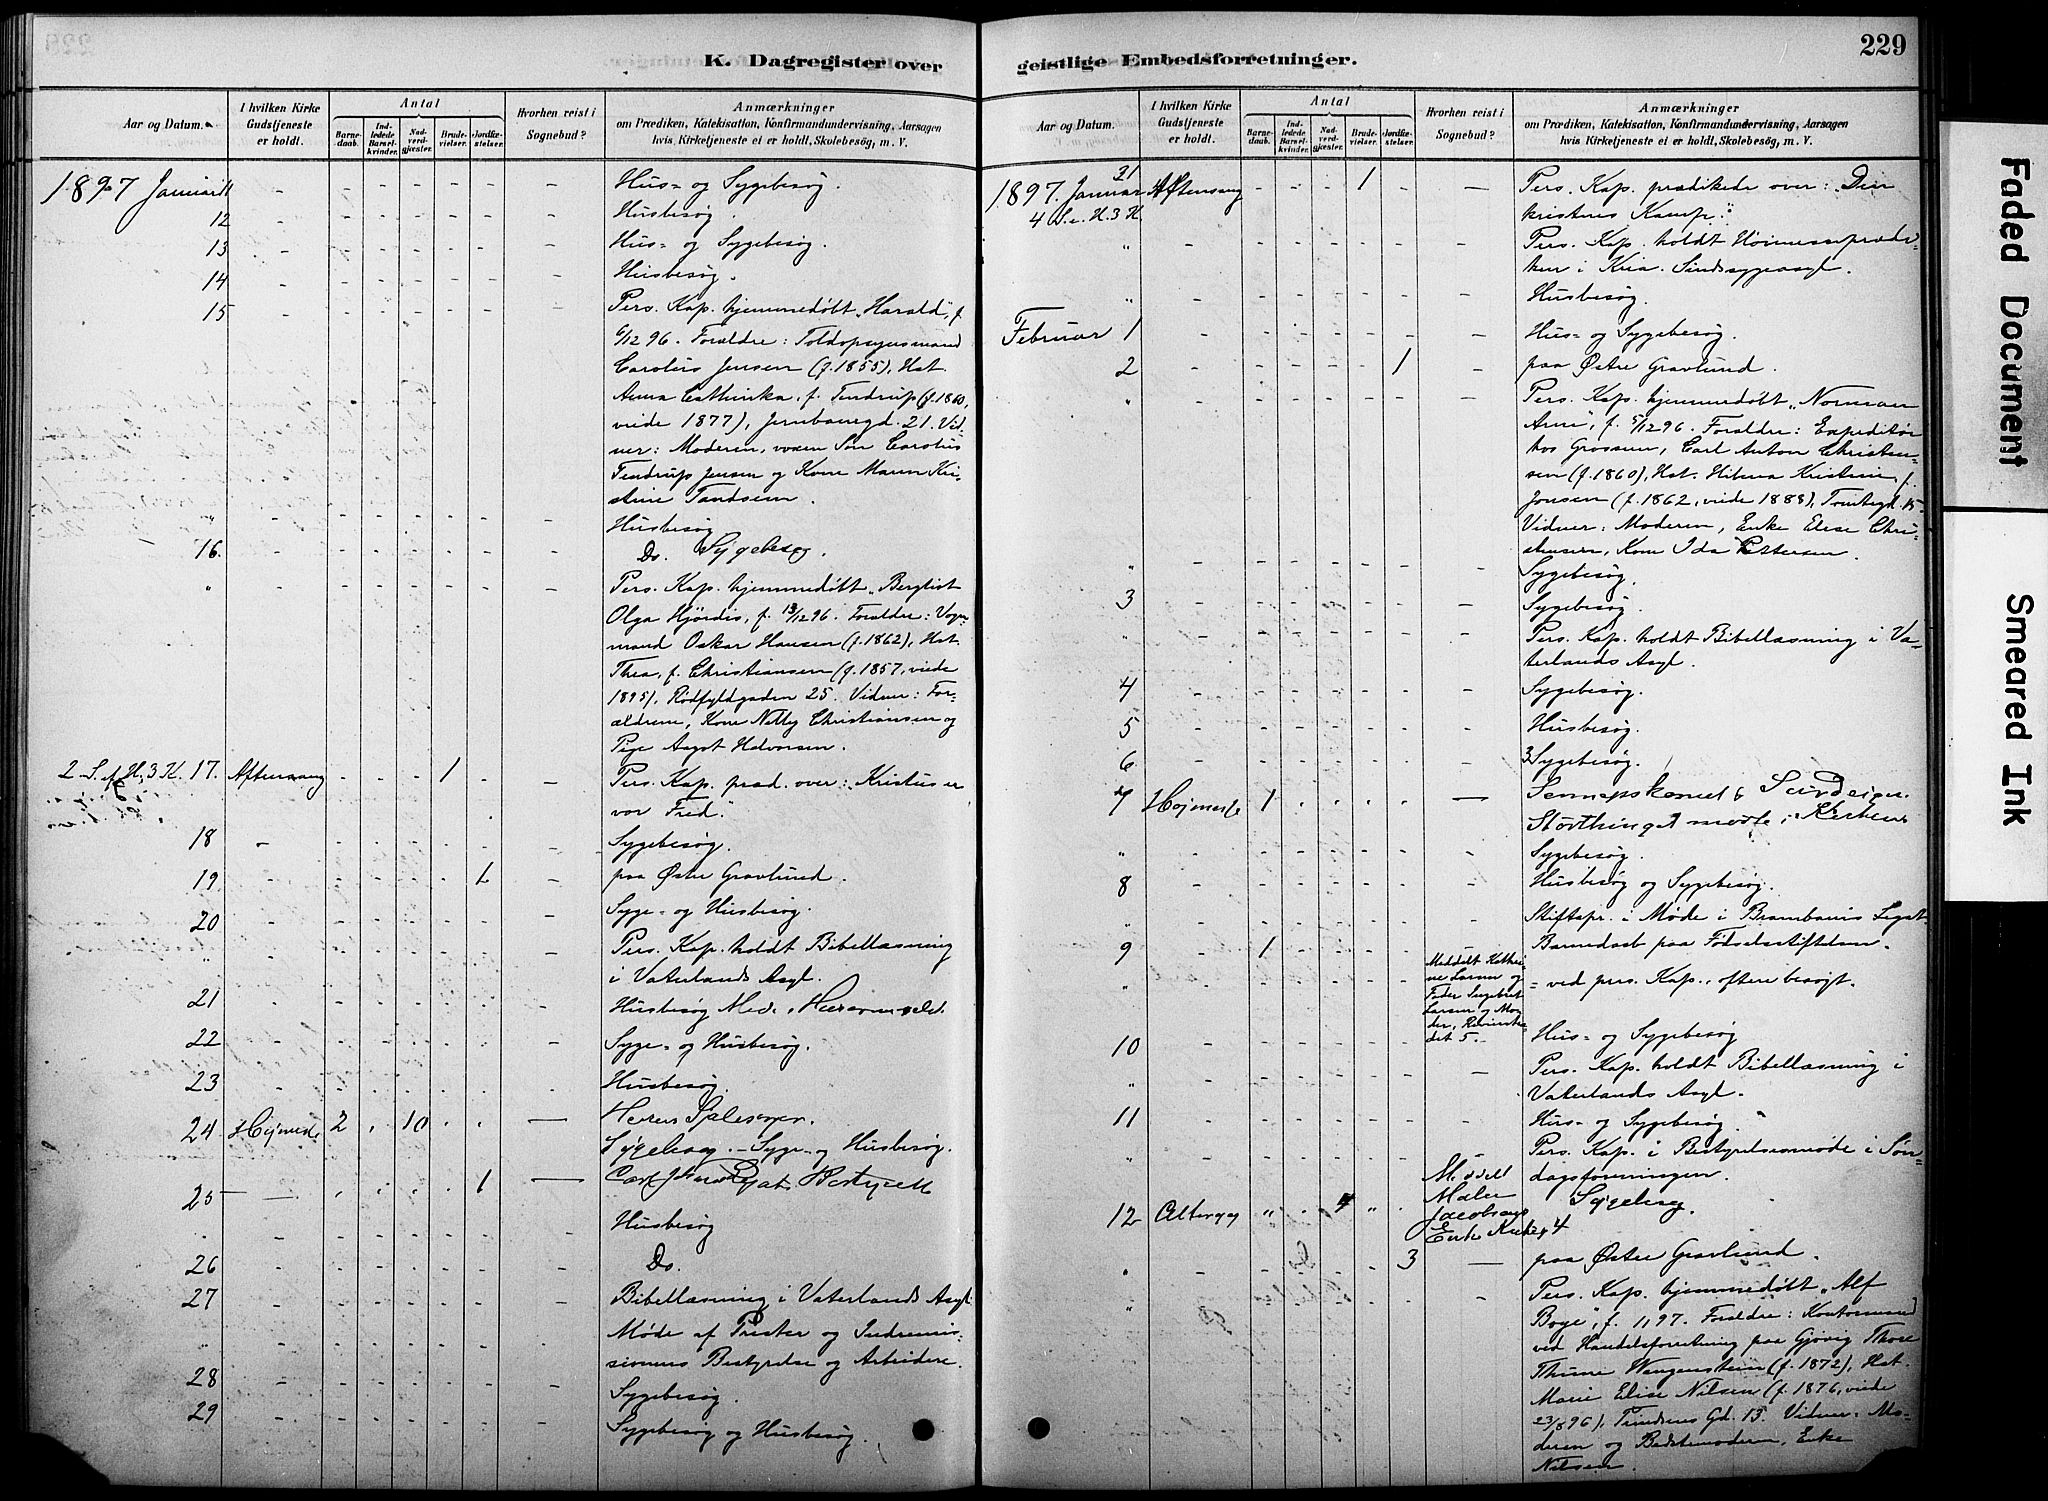 229
K. Dagregister over
Aar og Datum.
I hvilken Kirke Gudstjeneste er holdt.
Antal
Barne-daab.
Ind-ledede Barsel-kvinder.
Nad-verd-gjæster.
Brude-vielser.
Jordfæ-stelser.
Hvorhen reist i Sognebud?
Anmærkninger
om Prædiken, Katekisation, Konfirmandundervisning, Aarsagen
hvis Kirketjeneste ei er holdt, Skolebesøg, m. V.
1897 Januar 11 - - - - - - - Hus- og Sygebesøg.
12 - - - - - - - Husbesøg.
13 - - - - - - - Hus- og Sygebesøg.
14 - - - - - - - Husbesøg.
15 - - - - - - - Pers. Kap. hjemmedøbt „Harald", f.
6/12 96. Forældre: Toldopsynsmand
Carolius Jensen (f. 1855), Hst.
Anna Cathinka, f. Tendrup (f. 1860,
viede 1877), Jernbanegd. 21. Vid-
ner: Moderen, voxen Søn Carolius
Tendrup Jensen og Kone Maren Kri-
stine Tandsen.
" - - - - - - - Husbesøg
16. - - - - - - - Do. Sygebesøg.
" - - - - - - - Pers. Kap. hjemmedøbt „Bergliot
Olga Hjørdis, f. 13/12 96. Forældre: Vogn-
mand Oskar Hansen (f. 1862), Hst.
Thea, f. Christiansen (f. 1857, viede
1895), Rødfyldgaden 25. Vidner: For-
ældrene, Kone Nelly Christiansen og
Pige Aagot Halvorsen.
2 S. e. H. 3 K. 17. Aftensang - - - 1 - - Pers. Kap. præd. over: „Kristus er
vor Fred."
18 - - - - - - - Sygebesøg.
19 - - - - - 1 - paa Østre Gravlund.
20 - - - - - - - Syge- og Husbesøg.
" - - - - - - - Pers. Kap. holdt Bibellæsning
i Vaterlands Asyl.
21 - - - - - - - Husbesøg Mede i
22 - - - - - - - Syge- og Husbesøg.
23 - - - - - - - Husbesøg.
24 Højmesse 2 . 10 . . -
Sygebesøg. - Syge- og Husbesøg.
25 - . . . . 1 -
. - - - - - - - Husbesøg
26 - - - - - - - Do.
27 - - - - - - - Bibellæsning i Vaterlands Asyl.
" - - - - - - - Møde af Prester og Indremis-
sionens Bestyrelse og Arbeidere.
28 - - - - - - - Sygebesøg.
29 - - - - - - - Sygebesøg og Husbesøg.
geistlige Embedsforretninger.
Aar og Datum.
I hvilken Kirke Gudstjeneste er holdt.
Antal
Barne-daab.
Ind-ledede Barsel-kvinder.
Nad-verd-gjæster.
Brude-vielser.
Jordfæ-stelser.
Hvorhen reist i Sognebud?
Anmærkninger
om Prædiken, Katekisation, Konfirmandundervisning, Aarsagen
hvis Kirketjeneste ei er holdt, Skolebesøg, m. V.
1897. Januar 31 Aftensang - - - 1 - - Pers. Kap. prædikede over: „Den
4 S. e. H. 3 K. kristnes Kamp."
" - - - - - - - Pers. Kap. holdt Høimesseprædi-
ken i Kria. Sindssygeasyl.
" - - - - - - - Husbesøg.
Februar 1 - - - - - - - Hus- og Sygebesøg.
2 - - - - - 1 - paa Østre Gravlund.
" - - - - - - - Pers. Kap. hjemmedøbt „Norman
Arne", f. /12 96. Forældre: Expeditør
hos Grossern, Carl Anton Christen-
sen (f. 1860), Hst. Kristine, f.
Jonsen (f. 1862, viede 1888), Tomtegd. 15.
Vidner: Moderen, Enke Elise Chri-
stensen, Kone Ida Pettersen.
" - - - - - - - Sygebesøg.
3 - - - - - - - Sygebesøg.
" - - - - - - - Pers. Kap. holdt Bibellæsning i Va-
terlands Asyl.
4 - - - - - - - Sygebesøg.
5 - - - - - - - Husbesøg.
6 - - - - - - - 3 Sygebesøg.
7 Højmesse 1 . . . . - Sennepskornet & Surdeigen.
Storthinget mødte i Kirken
" - - - - - - - Sygebesøg.
8 - - - - - - - Husbesøg og Sygebesøg.
" - - - - - - - Stiftspr. i Møde i Legat
9 - 1 - - - - Barnedaab paa Fødselsstiftelsen.
" - - - - - - Meddelt Kathri-
ne Larsen og
Fader Ingebret
Larsen og Mo-
der,
det 5. - = ved pers. Kap., oftere besøgt.
10 - - - - - - Hus- og Sygebesøg
" - - - - - - - Pers. Kap. holdt Bibellæsning i
Vaterlands Asyl.
11 - - - - - - - Hus- og Sygebesøg.
" - - - - - - - Pers. Kap. i Bestyrelsesmøde i Søn-
dagsforeningen.
12 Altergang " . 4 " . Meddelt
Maler
Jacobsens
Enke 4 Sygebesøg.
" - - - - - 3 - paa Østre Gravlund.
" - - - - - - - Pers. Kap. hjemmedøbt „Alf
Boye", f. 1/1 97. Forældre: Kontormand
ved Handelsforretning paa Gjøvig Thore
Thune Wangensteen (f. 1872), Hst.
Marie Elise Nilsen (f. 1876, viede
23/8 96), Gd. 13. Vidner: Mo-
deren og Bedstemoderen, Enke
Nilsen.
Faded Document
Smeared Ink